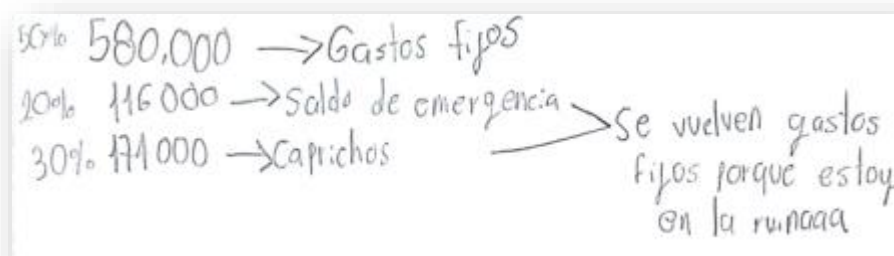 50% 580.000 → Gastos fijos
20% 116000 → Saldo de emergencia
30% 174000 → Caprichos
Se vuelven gastos
fijos porque estoy
en la ruinaaa